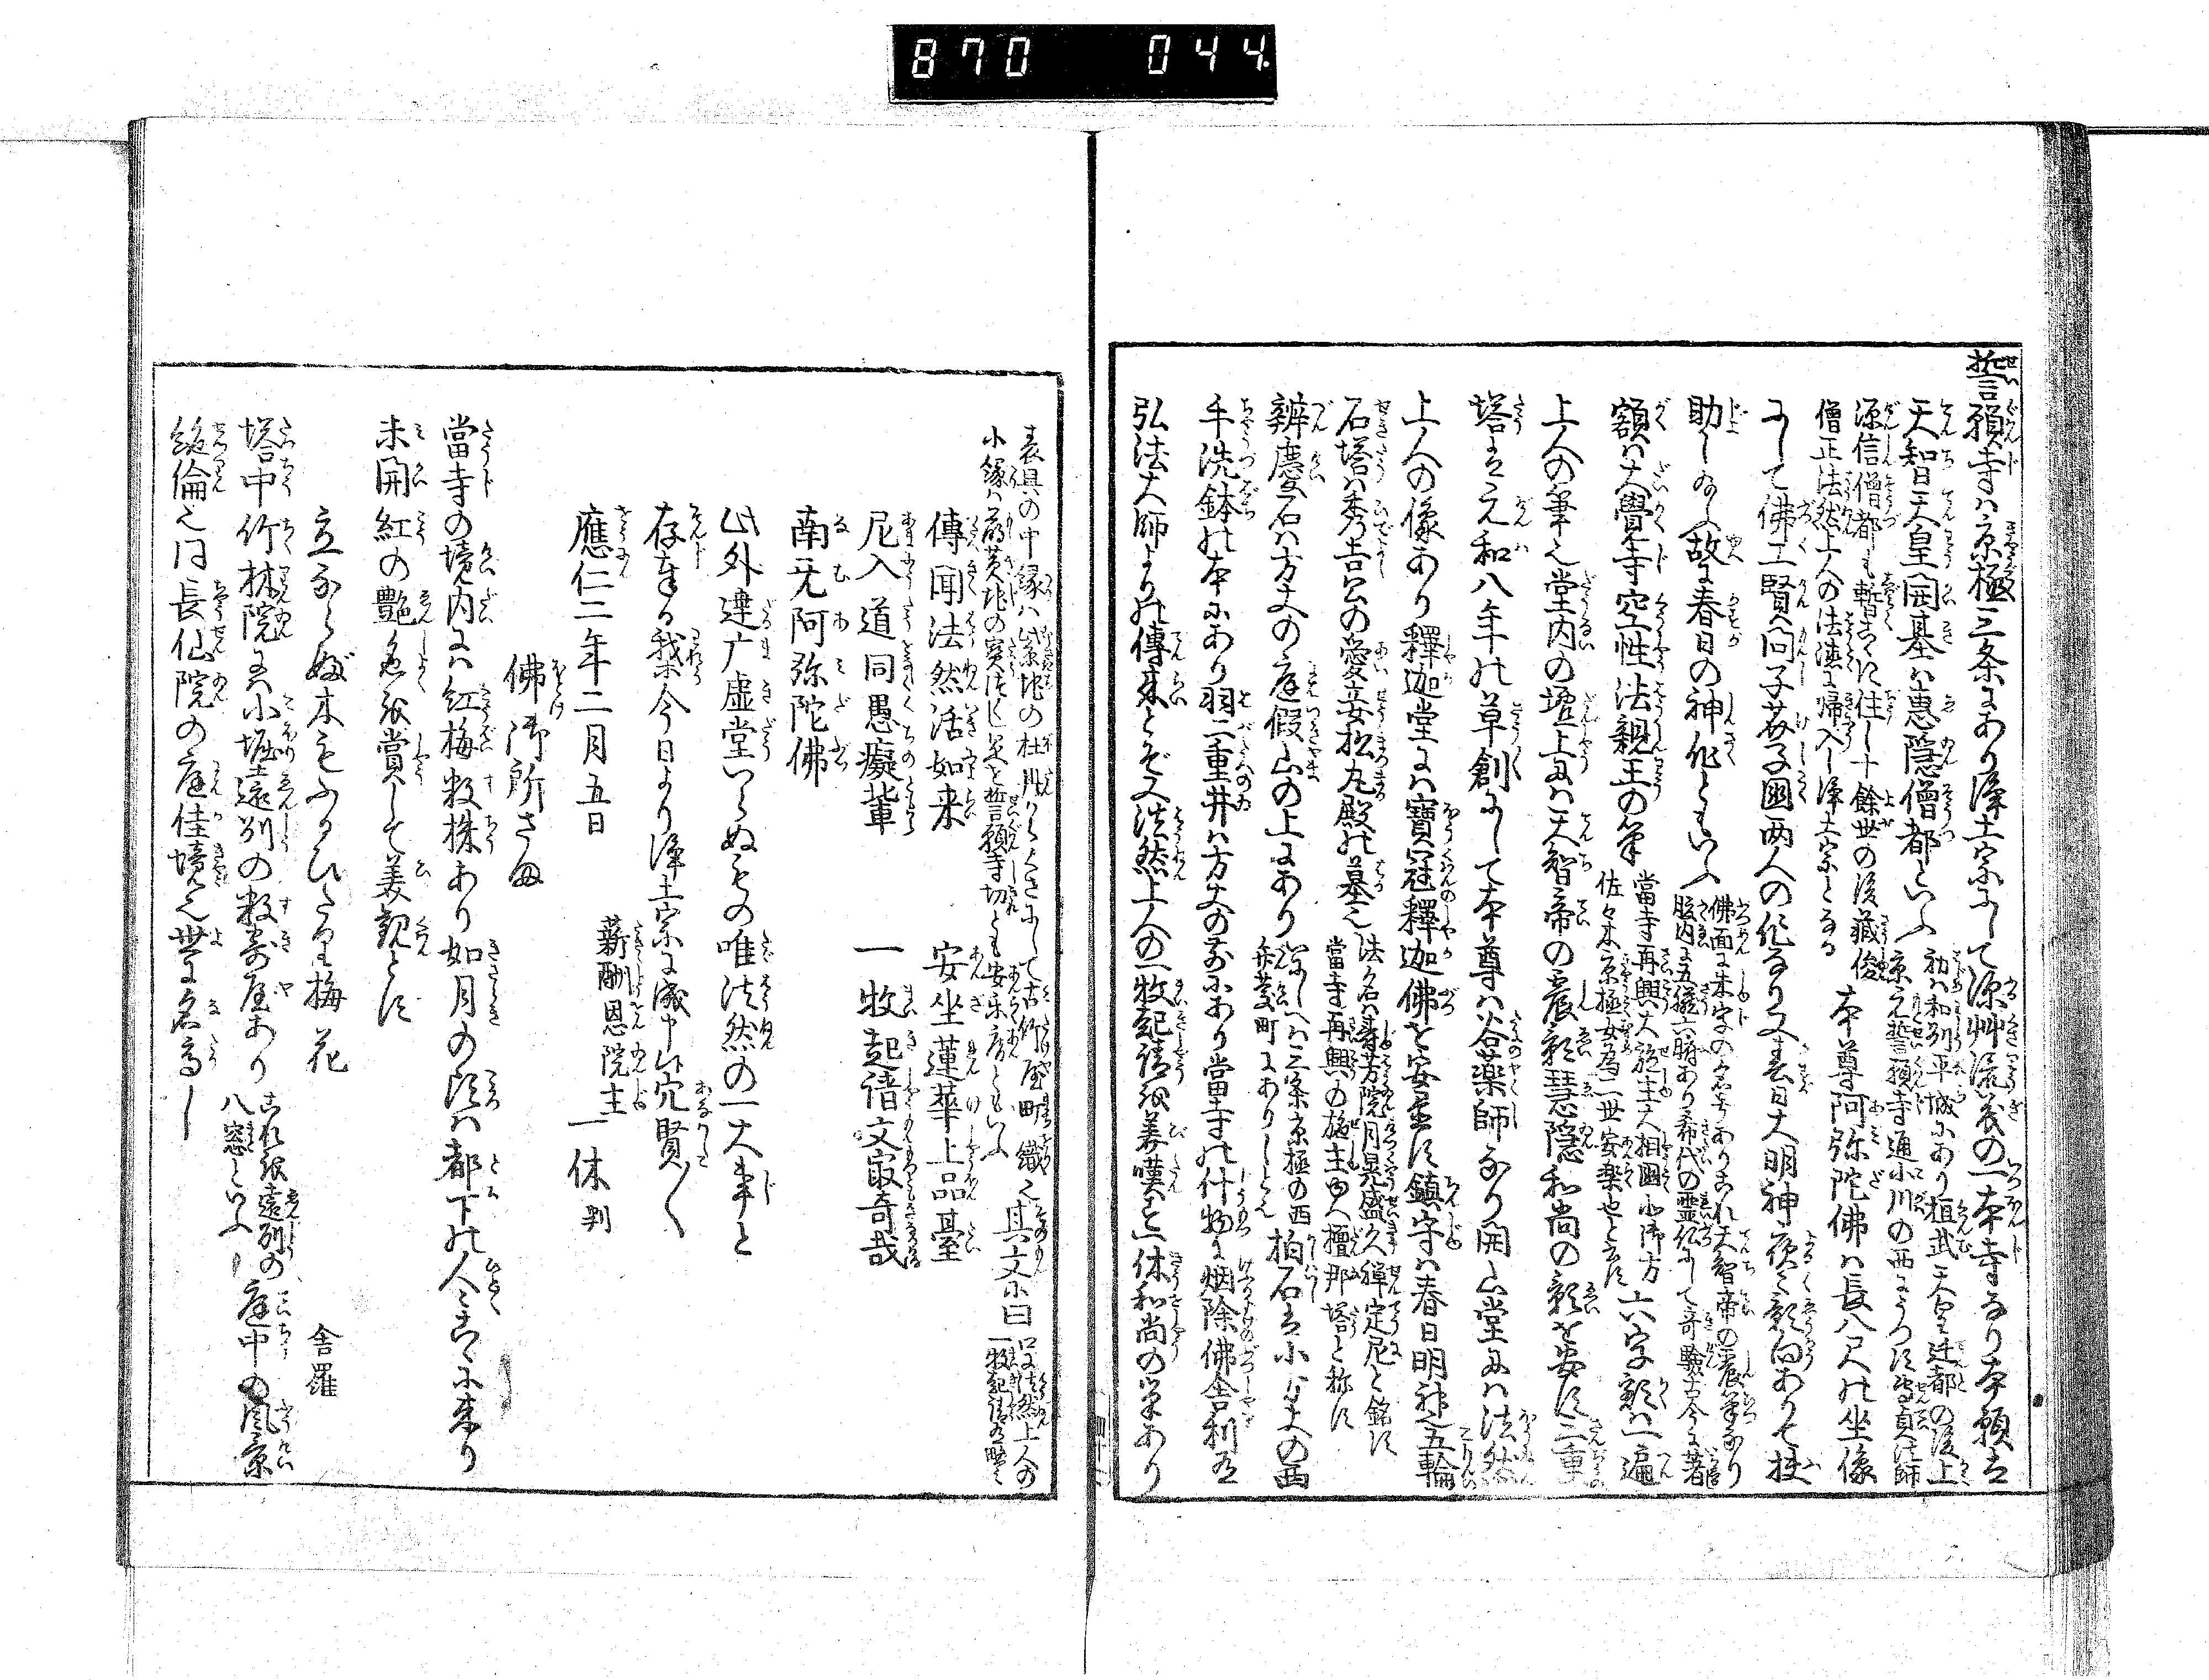 870 044
誓願寺ハ京極三条にあり浄土宗にして深艸流義の一本寺なり本願は
天智天皇開基ハ恵隠僧都といふ
初ハ和州平城にあり桓武天皇迁都の後上
京元誓願寺通小川の西にうつす
源信僧都も暫こゝに住し十余世の後蔵俊
僧正法然上人の法徳に帰入し浄土宗となる
本尊阿弥陀佛ハ長八尺の坐像
にして佛工賢問子芥子國両人の作なり又春日大明神夜々影向ありて扶
助し給ふ故に春日の神作ともいふ
佛面に朱字の名号ありこれ天智帝の宸筆なり
胎内に五臓六腑あり希代の霊仏にして奇験古今に著し
額ハ大覺寺空性法親王の筆
當寺再興大施主大相國北御方
佐々木京極女為二世安楽也と云々
六字額ハ一遍
上人の筆也堂内の壇上には天智帝の宸影慧隠和尚の影を安す三重
塔は元和八年の草創にして本尊ハ谷薬師なり開山堂には法然
上人の像あり釋迦堂にハ寶冠釋迦佛を安置す鎮守ハ春日明神也五輪
石塔ハ秀吉公の愛妾松丸殿の墓也
法名ハ寿芳院月晃盛久禅定尼と銘す
當寺再興の施主ゆへ檀那塔と称す
辨慶石ハ方丈の庭假山の上にあり
いにしへハ三条京極の西
弁慶町にありしとぞ
拍石は小方丈の西
手洗鉢の本にあり羽二重井ハ方丈の前にあり當寺の什物に烟除佛舎利は
弘法大師よりの傳来とぞ又法然上人の一枚起請を美嘆して一休和尚の筆あり
表具の中縁ハ紫地の牡丹からくさにして古竹屋町織也
小縁ハ萌黄地の
是を誓願寺切とも安楽庵ともいふ
其文に曰
傳聞法然活如来　安坐蓮華上品臺
尼入道同愚癡輩　一枚起請文最奇哉
南无阿弥陀佛
此外達广虚堂いらぬもの唯法然の一大事と
存奉る我等今日より浄土宗に成申候穴賢〱
薪酬恩院主　一休判
應仁二年二月五日
佛御所さま
當寺の境内にハ紅梅数株あり如月の頃ハ都下の人々こゝに来り
未開紅の艶色を賞して美観とす
立ならぶ木もふるびたり梅花　舎羅
塔中竹林院には小堀遠州の数寄屋あり
これを遠州の
八窓といふ
庭中の風景
絶倫也同長仙院の庭佳境也世に名高し